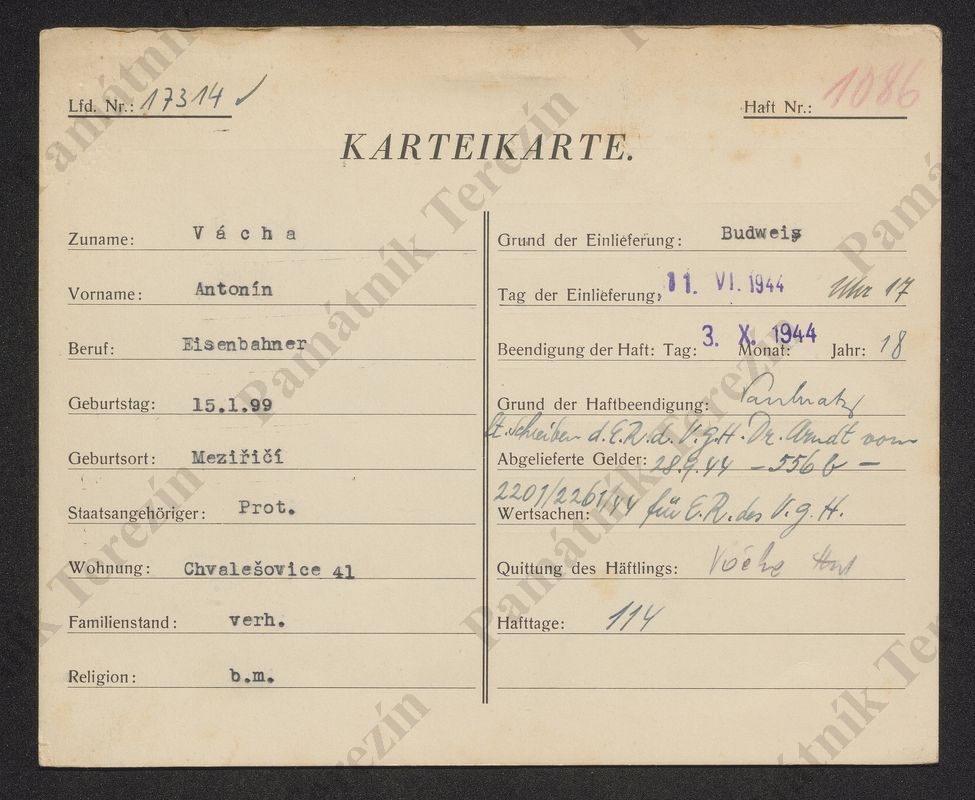 Lfd. Nr.: 17314 ✓
Haft Nr.: 1086
KARTEIKARTE.
Zuname: Vácha
Vorname: Antonín
Beruf: Eisenbahner
Geburtstag: 15.1.99
Geburtsort: Meziřičí
Staatsangehöriger: Prot.
Wohnung: Chvalešovice 41
Familienstand: verh.
Religion: b.m.
Grund der Einlieferung: Budweis
Tag der Einlieferung: 11. VI. 1944 Uhr 17
Beendigung der Haft: Tag: 3. Monat: X. 1944 Jahr: 18
Grund der Haftbeendigung:
lt. Schreiben d. E.R.d. V.g.H. Dr. Arndt vom
Abgelieferte Gelder: 28.9.44 – 556 b –
2201/2261/44 für E.R. des V.g.H.
Wertsachen:
Quittung des Häftlings: Vácha Ant
Hafttage: 114
Památník Terezín